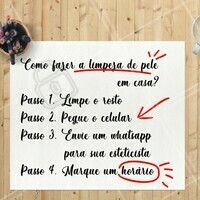 Como fazer a limpeza de pele
em casa?
Passo 1. Limpe o rosto
Passo 2. Pegue o celular
Passo 3. Envie um whatsapp
para sua esteticista
Passo 4. Marque um horário